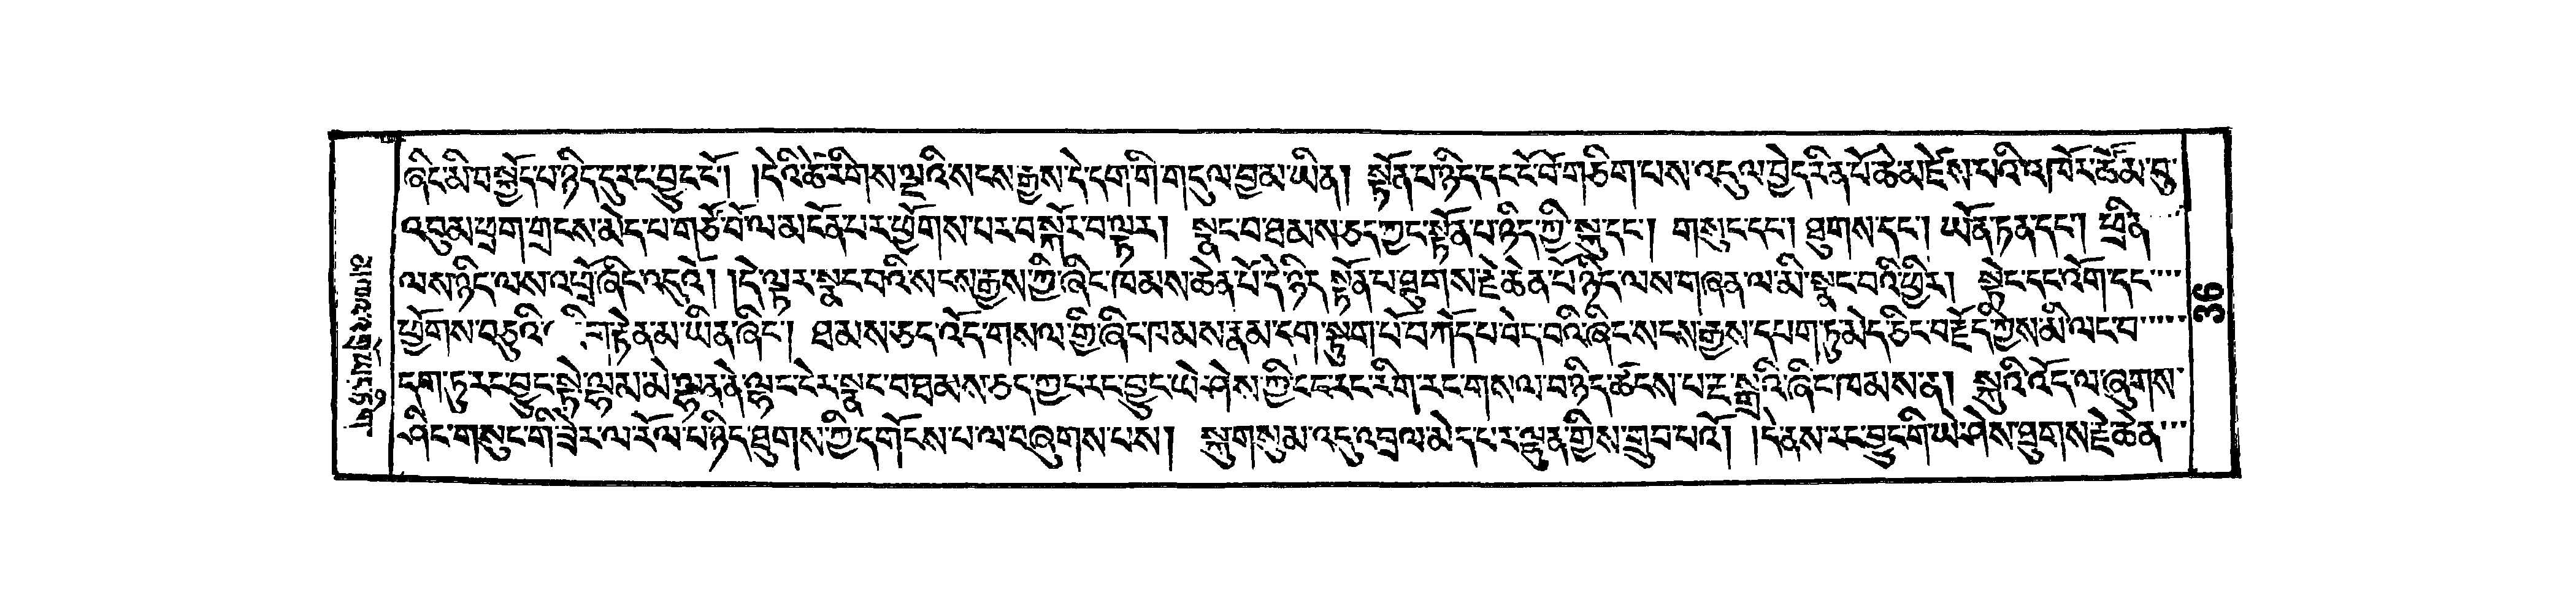 ཞིང་མི་བསྐྱོད་པ་ཉིད་དུ་རང་བྱུང་ངོ་། །དེའི་ཚེ་རིགས་ལྔའི་སངས་རྒྱས་དེ་དག་གི་གདུལ་བྱ་མ་ཡིན། སྟོན་པ་ཉིད་དང་ངོ་བོ་གཅིག་པས་འདུལ་བྱེད་རིན་པོ་ཆེ་མ་ངེས་པའི་འཁོར་ཚོམ་བུ་
འབུམ་ཕྲག་གྲངས་མེད་པ་གཙོ་བོ་ལ་མངོན་པར་ཕྱོགས་པར་བསྐོར་བ་ལྟར། སྣང་བ་ཐམས་ཅད་ཀྱང་སྟོན་པ་ཉིད་ཀྱི་སྐུ་དང་། གསུང་དང་། ཐུགས་དང་། ཡོན་ཏན་དང་། ཕྲིན་
ལས་ཉིད་ལས་འཕྲོ་ཞིང་འདུའོ། །དེ་ལྟར་སྣང་བའི་སངས་རྒྱས་ཀྱི་ཞིང་ཁམས་ཆེན་པོ་དེ་ཉིད་སྟོན་པ་ཐུགས་རྗེ་ཆེན་པོ་ཉིད་ལས་གཞན་ལ་མི་སྣང་བའི་ཕྱིར། སྟེང་དང་འོག་དང་
ཕྱོགས་བཅུའི་ རྟེན་མ་ཡིན་ཞིང་། ཐམས་ཅད་འོད་གསལ་གྱི་ཞིང་ཁམས་རྣམ་དག་སྟུག་པོ་བཀོད་པ་བདེ་བའི་ཞིང་སངས་རྒྱས་དཔག་ཏུ་མེད་ཅིང་བརྗོད་ཀྱིས་མི་ལང་བ་
དག་ཏུ་རང་བྱུང་སྟེ་ལྷམ་མེ་ལྷན་ནེ་ལྷང་ངེར་སྣང་བ་ཐམས་ཅད་ཀྱང་རང་བྱུང་ཡེ་ཤེས་ཀྱི་ངང་རང་རིག་རང་གསལ་བ་ཉིད་ཚངས་པ་ང་སྒྲའི་ཞིང་ཁམས་ན། སྐུའི་འོད་ལ་ཞུགས་
ཤིང་གསུང་གི་ཟེར་ལ་རོལ་པ་ཉིད་ཐུགས་ཀྱི་དགོངས་པ་ལ་བཞུགས་པས། སྐུ་གསུམ་འདུ་འབྲལ་མེད་པར་ལྷུན་གྱིས་གྲུབ་པའོ། །དེ་ནས་རང་བྱུང་གི་ཡེ་ཤེས་ཐུགས་རྗེ་ཆེན་